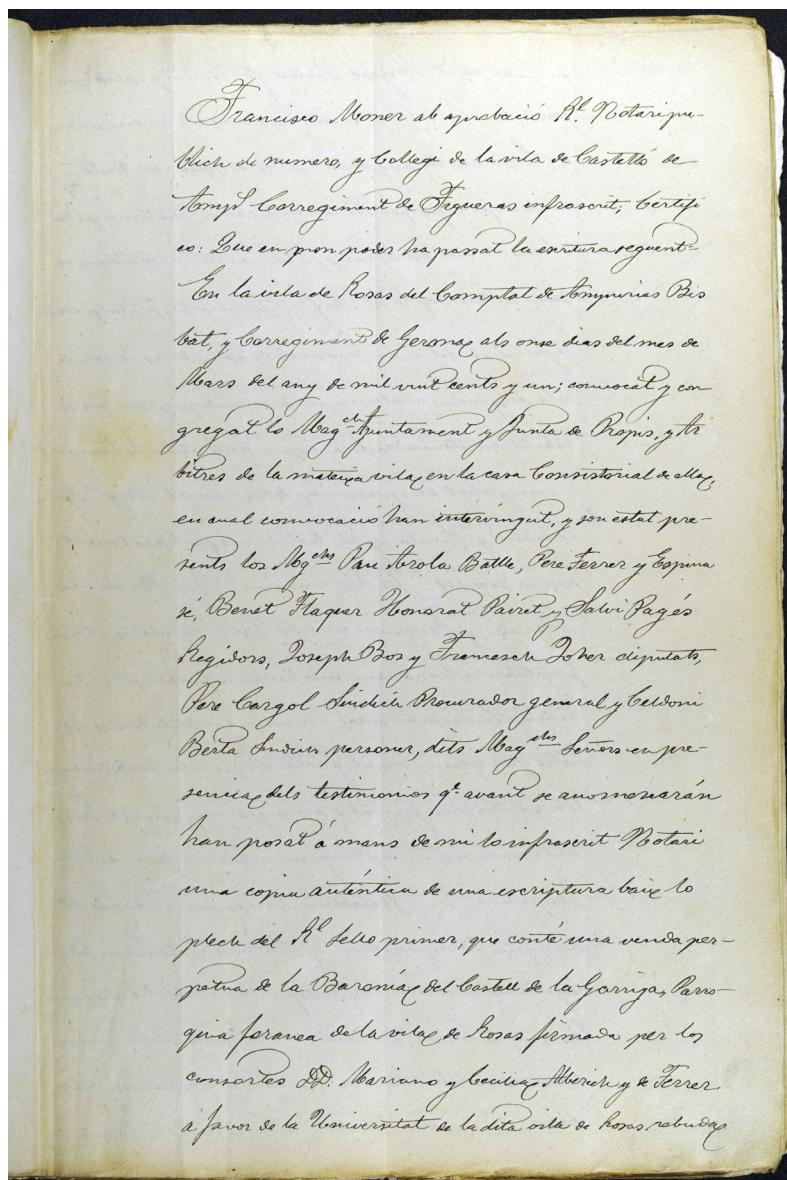 Francisco Moner ab aprobació Rl. Notari pu-
blich de numero, y Collegi de la vila de Castelló de
Ampˢ Corregiment de Figueras infrascrit; Certifi
co: Que en mon poder ha passat la escritura seguent=
En la vila de Rosas del Comptat de Ampurias Bis
bat, y Corregiment de Gerona, als onse dias del mes de
Mars del any de mil vuit cents y un; convocat y con
gregat lo Magch Ajuntament y Junta de Propis, y Ar
bitres de la mateixa vila, en la casa Consistorial de ella,
en cual convocació han intervingut, y son estat pre-
sents los Mgchs Pau Arola Batlle, Pere Ferrer y Espina
sé, Benet Flaquer Honorat Pairet y Salvi Pagés
Regidors, Joseph Bos y Francesch Jofer diputats,
Pere Cargol Sindich Procurador general y Celdoni
Berta Sindich personer, dits Magchs Señors en pre-
sencia, dels testimonios qe avant se anomenarán
han posat á mans de mi lo infrascrit Notari
una copia auténtica de una escriptura baix lo
plech del Rl Sello primer, que conté una venda per-
petua de la Baronía, del Castell de la Garriga, Parro-
quia foranea de la vila, de Rosas firmada per los
consortes DD. Mariano y Cecilia, Alberich y de Ferrer
á favor de la Universitat de la dita vila de Rosas rebuda,